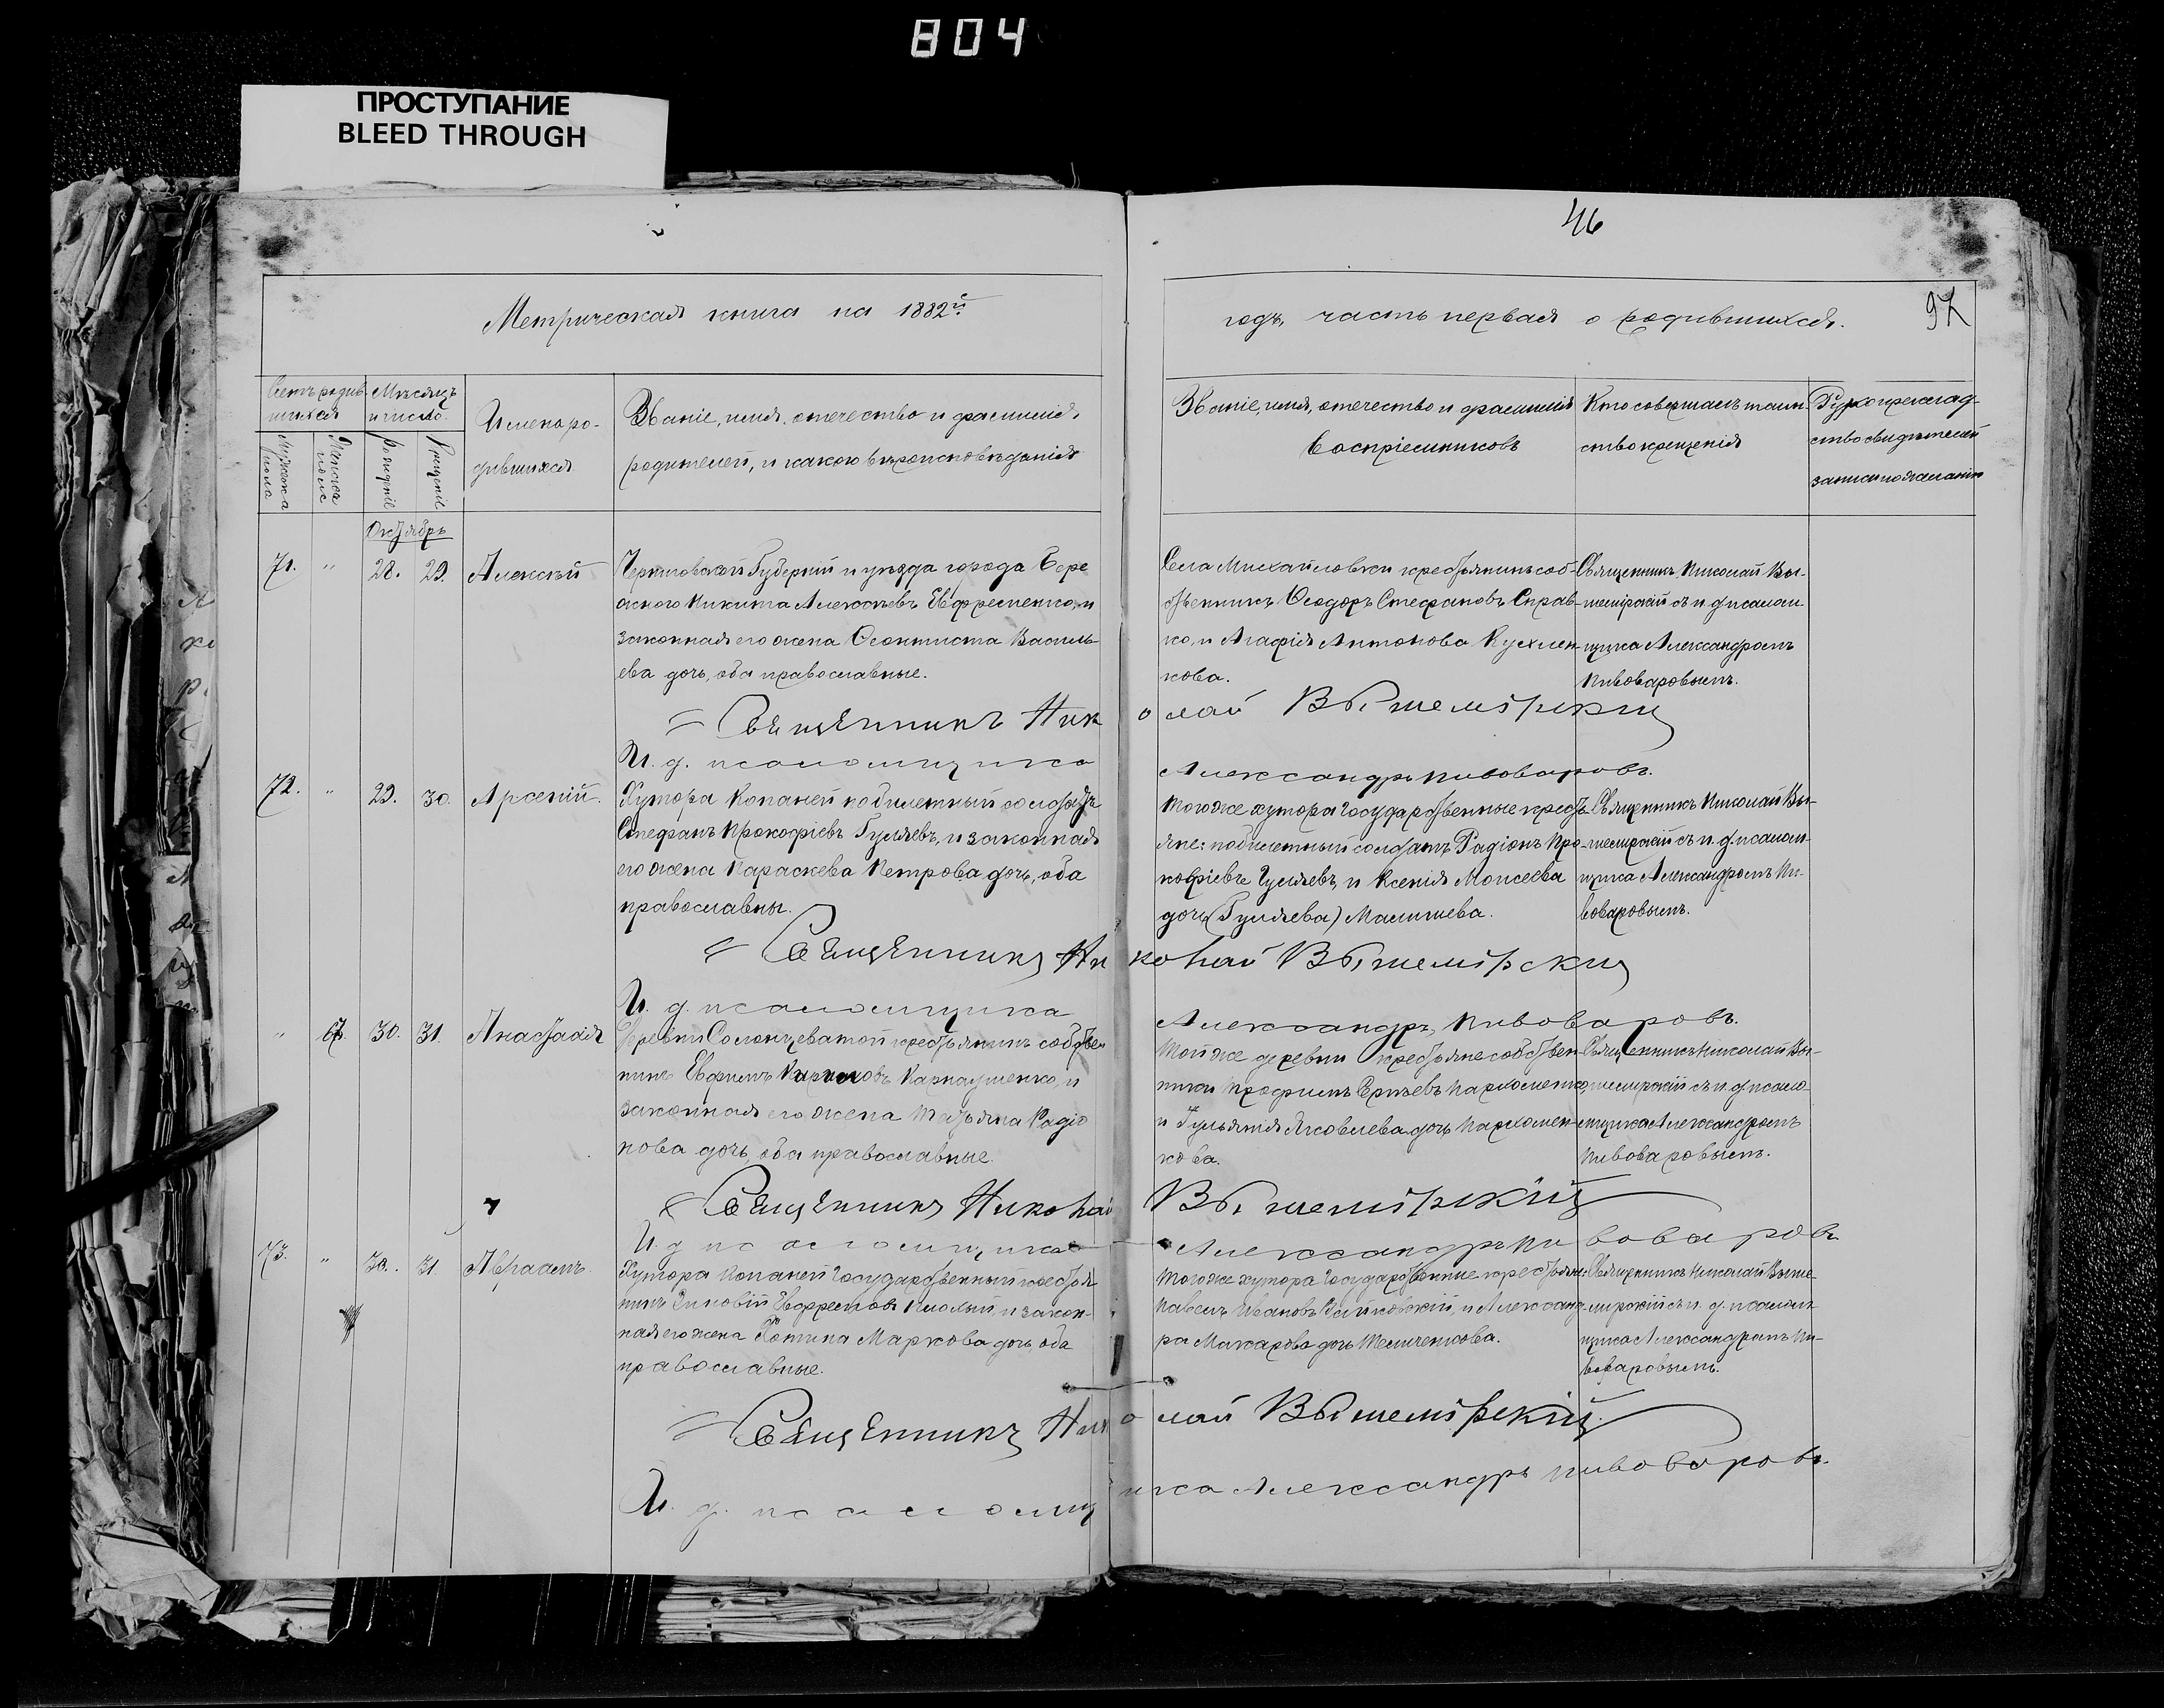 804
ПРОСТУПАНИЕ
BLEED THROUGH
46
97
Метрическая книга на 1882й
годъ, часть первая о родившихся.
Счетъ родив-
шихся
Мужска пола
Женска пола
Мѣсяцъ
и число
рожденіе
Крещеніе
Имена ро-
дившихся
Званіе, имя, отечество и фамилія,
родителей, и какого вѣроисповѣданія
Званіе, имя, отечество и фамилія
Воспріемниковъ
Кто совершалъ таин-
ство крещенія
Рукоприклад-
ство свидѣтелей
записи по желанію
Октябрь
71. " 28. 29. Алексѣй
Черниговской Губерніи и уѣзда города Бере
знаго Никита Алексѣевъ Евфременко, и
законная его жена Феоктиста Василь-
ева дочь, оба православные.
Села Михайловки крестьянинъ соб-
ственникъ Феодоръ Стефановъ Справ-
ко, и Агафія Антонова Кухлен-
кова.
Священникъ Николай Вы-
шемірскій съ и. д. псалом-
щика Александромъ
Пивоваровымъ.
Священникъ Николай Вышемірскій
И. д. псаломщика Александръ Пивоваровъ.
72. " 29. 30. Арсеній.
Хутора Копаней побилетный солдатъ
Стефанъ Прокофіевъ Гуляевъ, и законная
его жена Параскева Петрова дочь, оба
православны.
Того же хутора государственные кресть-
яне: побилетный солдатъ Радіонъ Про-
кофіевъ Гуляевъ, и Ксенія Моисеева
дочь (Гуляева) Малышева.
Священникъ Николай Вы-
шемірскій съ и. д. псалом-
щика Александромъ Пи-
воваровымъ.
Священникъ Николай Вышемірскій
И. д. псаломщика Александръ Пивоваровъ.
" 67. 30. 31. Анастасія
Деревни Солонцеватой крестьянинъ собствен
никъ Ефимъ Карповъ Карпаушенко, и
законная его жена Татьяна Радіо
нова дочь, оба православные.
Той же деревни крестьяне собствен-
ники Трофимъ Пархоменко,
и Гульянія Яковлева дочь Пархомен-
кова.
Священникъ Николай Вы-
шемирскій съ и. д. псало-
мщика Александромъ
Пивоваровымъ.
Священникъ Николай Вышемірскій
И. д. псаломщика Александръ Пивоваровъ
73. " 30. 31. Авраамъ.
Хутора Копаней Государственный крестья
нинъ Зиновій Евфремовъ и закон-
ная его жена Фотина Маркова дочь, оба
православные.
Того же хутора Государственные крестьяне:
Павелъ Ивановъ и Александ-
ра Макарова дочь Темченкова.
Священникъ Николай Выше-
мирскій съ и. д. псалом-
щика Александромъ Пи-
воваровымъ.
Священникъ Николай Вышемірскій.
И. д. псаломщика Александръ Пивоваровъ.